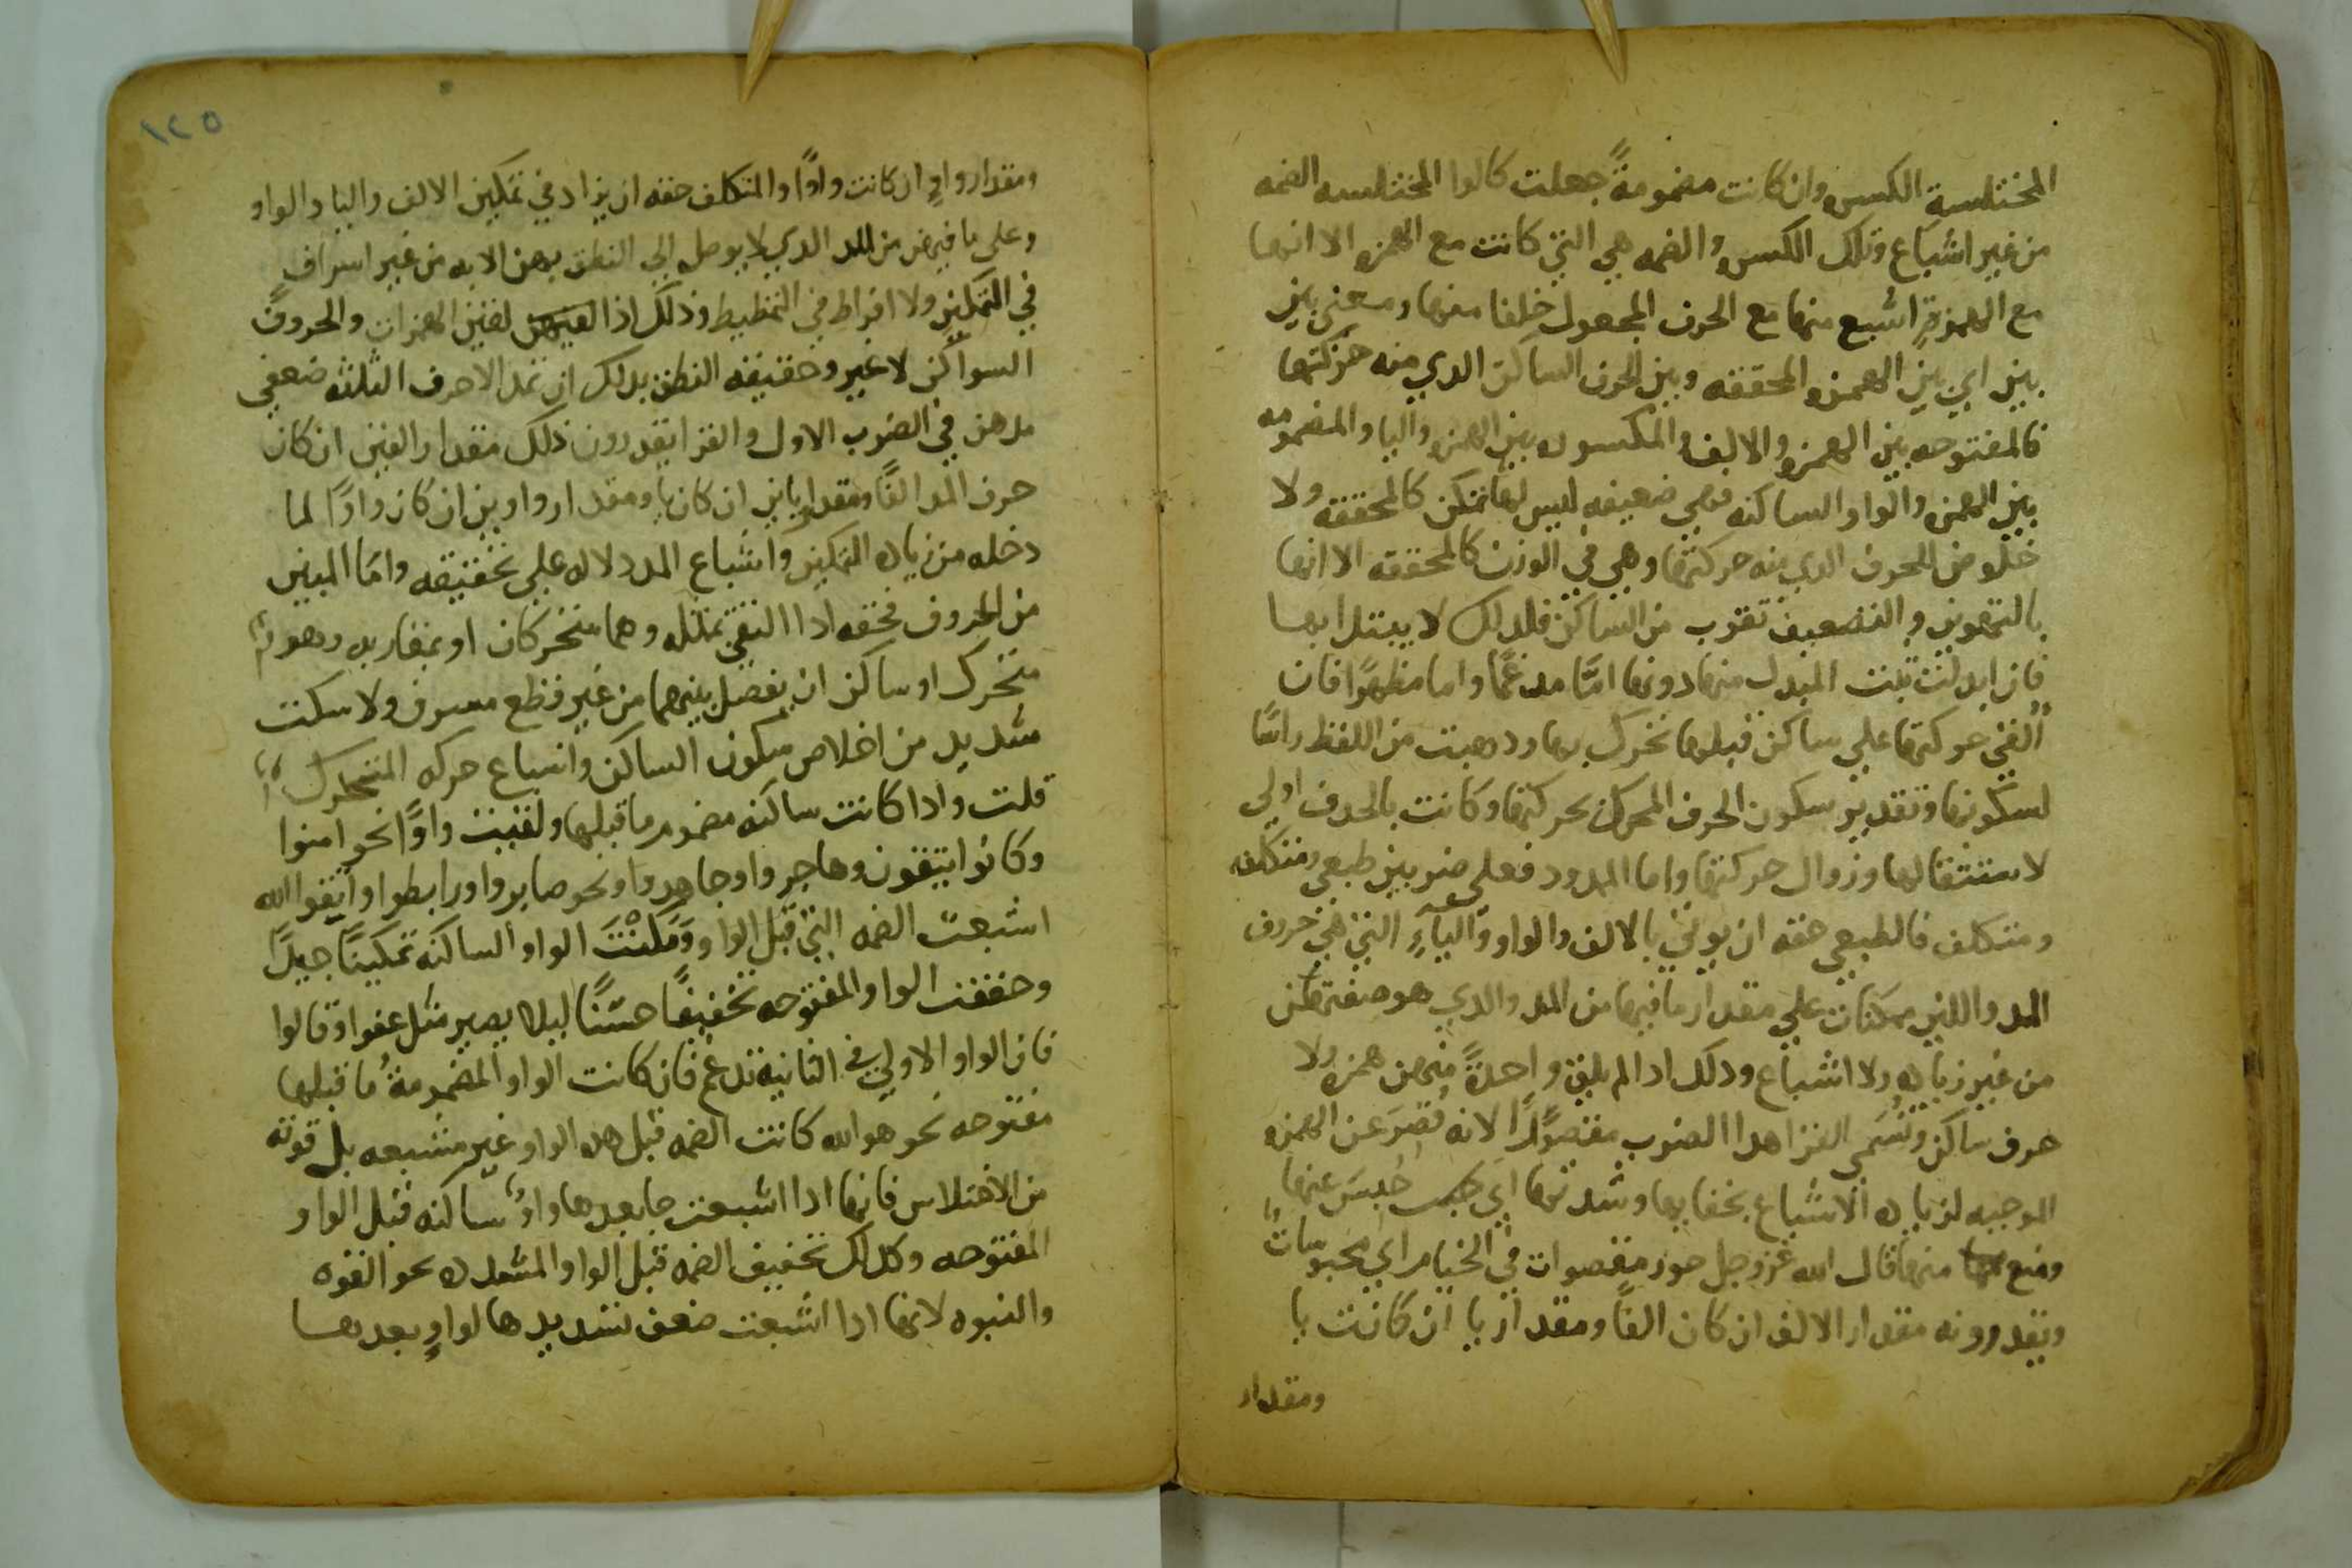 المختلسة الكسره وان كانت مضمومةً جعلت كالواو المختلسه الضمه
من غير اشباع وتلك الكسره والضمه هي التي كانت مع الهمزه الا انها
مع الهمزةِ اشبع منها مع الحرف المجعول خلفا منها ومعنى بين
بين اي بين الهمزه المحققه وبين الحرف الساكن الدي منه حركتها
فالمفتوحه بين الهمزه والالف والمكسوره بين الهمزه واليا والمضمومه
بين الهمزه والواو الساكنه فهي ضعيفه ليس لها تمكن كالمحققه ولا
خلوص الحرف الدي منه حركتها وهي في الوزن كالمحققه الا انها
بالتهوين والتضعيف تقرب من الساكن فلدلك لا يبتدا بها
فان ابدلت ثبت المبدل منها دونها امّا مدغمًا واما مظهرًا فان
القي حركتها على ساكن قبلها تحرك بها ودهبت من اللفظ راسًا
لسكونها وتقدير سكون الحرف المحرك بحركتها وكانت بالحدف اولي
لاستثقالها وزوال حركتها واما الممدود فعلى ضربين طبعي ومتكلف
ومتكلف فالطبعي حقه ان يوتي بالالف والواو والياءِ التي هي حروف
المد واللين ممكنات على مقدار ما فيها من المد والدي هو صفتهن
من غير زياده ولا اشباع ودلك ادا لم يلق واحدةً منهن همزه ولا
حرف ساكن وتُسَمي القرا هدا الضرب مقصورًا لانه قُصرَ عن الهمزه
الموجبه لزياده الاشباع بخفايها وشدتها اي حُبسَ عنها
ومنع منها قال الله عز وجل حور مقصورات في الخيام اي محبوساتٌ
ويقدرونه مقدار الالف ان كان الفًا ومقدار يا ان كانت يا
ومقدار
١٢٥
ومقدار واوٍ ان كانت واوًا والمتكلف حقه ان يزاد في تمكين الالف واليا والواو
وعلى ما فيهن من المد الدي لا يوصل الي النطق بهن الا به من غير اسراف
في التمكين ولا افراط في التمطيط وذلك اذا لقين الهمزات والحروف
السواكن لا غير وحقيقه النطق بدلك ان تمد الاحرف الثلثه ضعفي
مدهن في الضرب الاول والقرا يقدرون ذلك مقدار الفين ان كان
حرف المد الفًا ومقدار يايين ان كان يا ومقدار واوين ان كان واوًا لما
دخله من زياده التمكين واشباع المد دلاله علي تحقيقه وامّا المبين
من الحروف فحقه ادا التقي بمثله وهما متحركان او بمقاربه وهو
متحرك او ساكن ان يفصل بينهما من غير قطع مسرف ولا سكت
شديد من اخلاص سكون الساكن واشباع حركه المتحرك
قلت وادا كانت ساكنه مضموم ما قبلها ولقيت واوًا نحو امنوا
وكانوا يتقون وهاجروا وجاهدوا ونحو صابروا ورابطوا واتقوا الله
اشبعت الضمه التي قبل الواو وَمَكنْتَ الواو الساكنه تمكينًا جيدًا
وخففت الواو المفتوحه تخفيفًا حسنًا ليلا يصير مثل عفوا وقالوا
فان الواو الاولي في الثانيه تدغم فان كانت الواو المضمومةُ ما قبلها
مفتوحه نحو هو الله كانت الضمه قبل هده الواو غير مشبعه بل قوته
من الاختلاس فانها ادا اشبعت جا بعدها واوٌ ساكنه قبل الواو
المفتوحه وكدلك تخفيف الضمه قبل الواو المشدده نحو القوه
والنبوه لانها ادا اشبعت ضعف تشديدها لواوٍ بعدها